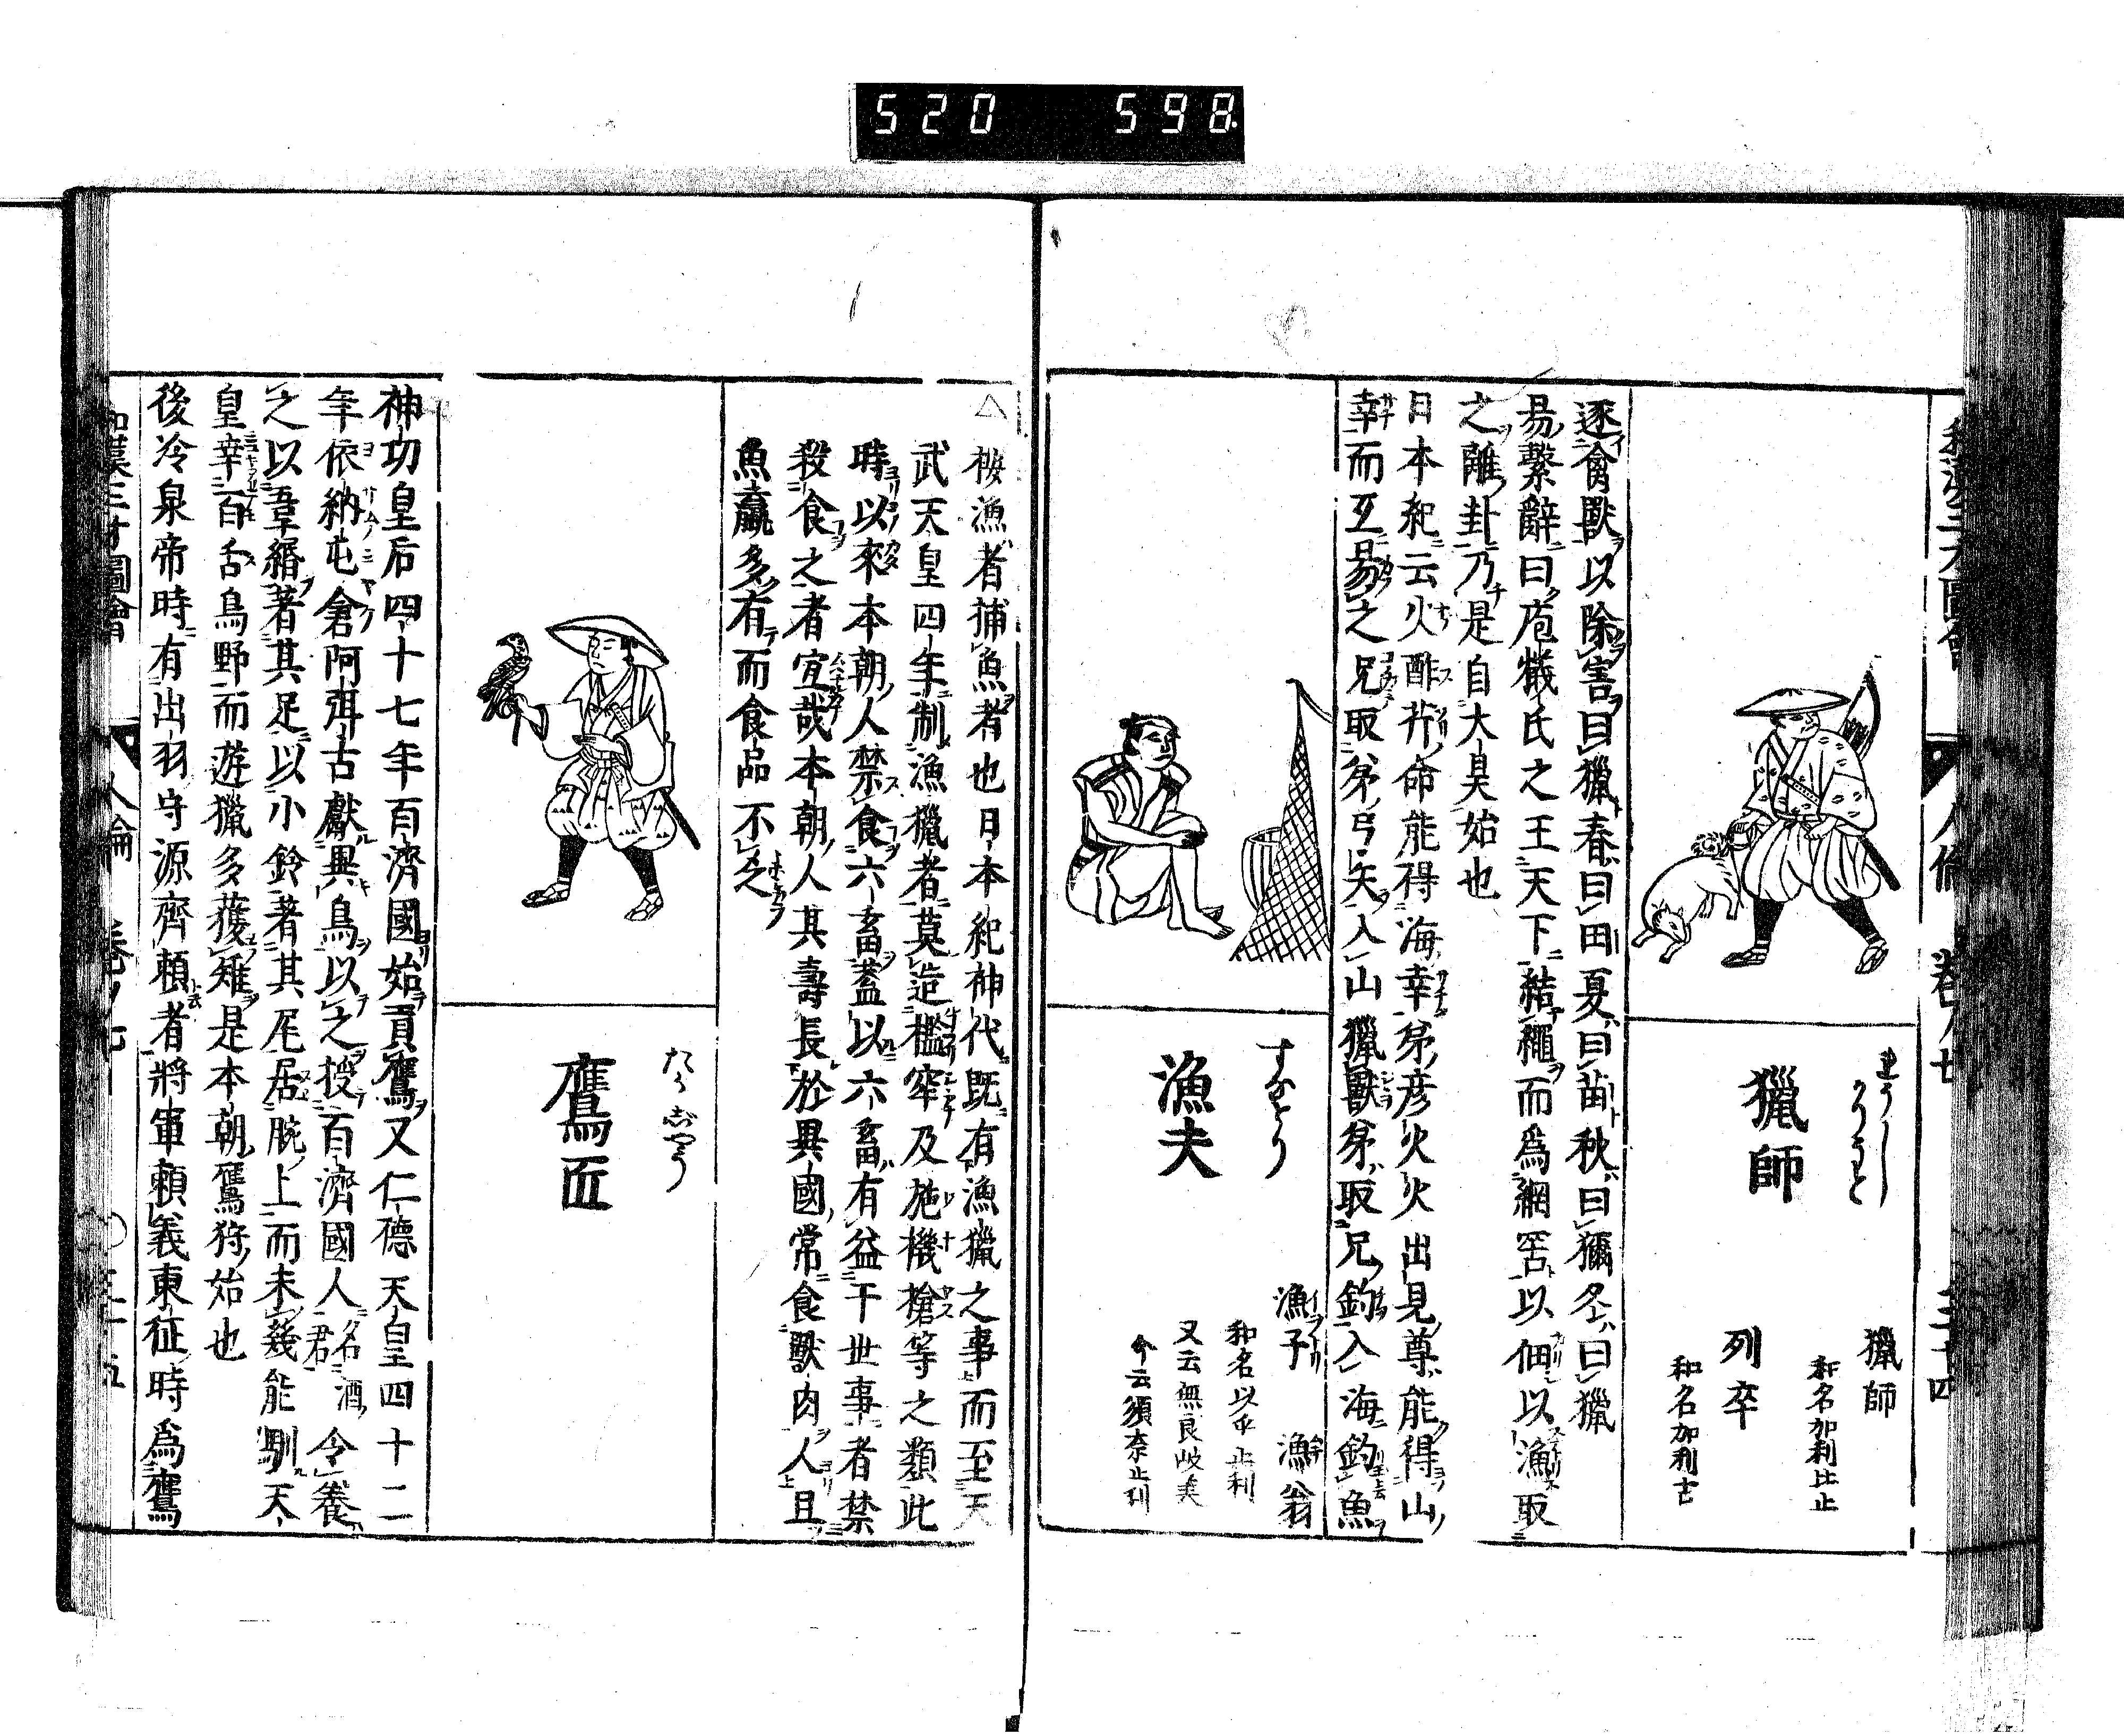 520 598
和漢三才圖會 人倫 卷ノ七 三十四
れうし
かりうど
獵師
獵師
和名加利比止
列卒
和名加利古
逐禽獸以除害曰獵春曰田夏曰苗秋曰獮冬曰獵
易繫辭曰庖犧氏之王天下結繩而爲網罟以佃以漁取
之離卦乃是自大昊始也
日本紀云火酢芹命能得海幸弟彦火火出見尊能得山
幸而互易之兄取弟弓矢入山獵獸弟取兄釣入海釣魚
すなどり
漁夫
漁子 漁翁
和名以乎止利
又云無良岐美
今云須奈止利
△按漁者捕魚者也日本紀神代既有漁獵之事而至天
武天皇四年制漁獵者莫造檻穽及施機槍等之類此
時以來本朝人禁食六畜蓋以六畜有益于世事者禁
殺食之者宜哉本朝人其壽長於異國常食獸肉人且
魚蠃多有而食品不乏
たかじやう
鷹匠
神功皇后四十七年百濟國始貢鷹又仁德天皇四十二
年依納屯倉阿弭古獻異鳥以之授百濟國人名酒君令養
之以韋緡著其足以小鈴著其尾居腕上而未幾能馴天
皇幸百舌鳥野而遊獵多獲雉是本朝鷹狩始也
後冷泉帝時有出羽守源齊賴者將軍賴義東征時爲鷹
和漢三才圖會 人倫 卷ノ七 三十五